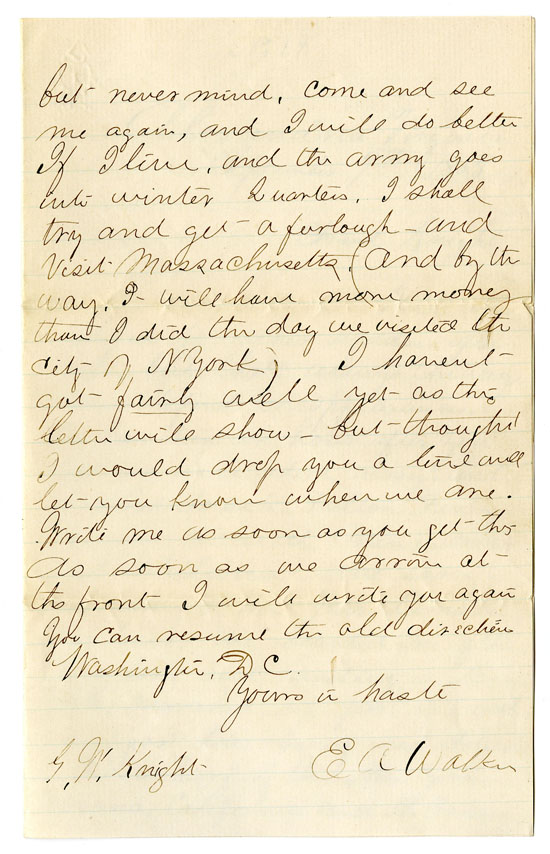 but never mind. Come and see
me again, and I will do better
If I live, and the army goes
into winter Quarters, I shall
try and get a furlough - and
visit Massachusetts. (And by the
way, I will have more money
than I did the day we visited the
city of N York) I havent
got fairly well yet as this
letter will show - but thought
I would drop you a line and
let you know where we are.
Write me as soon as you get this
As soon as we arrive at
the front I will write you again
You can resume the old direction
Washington, D C.
Yours in haste
G. W. Knight
E A Walker